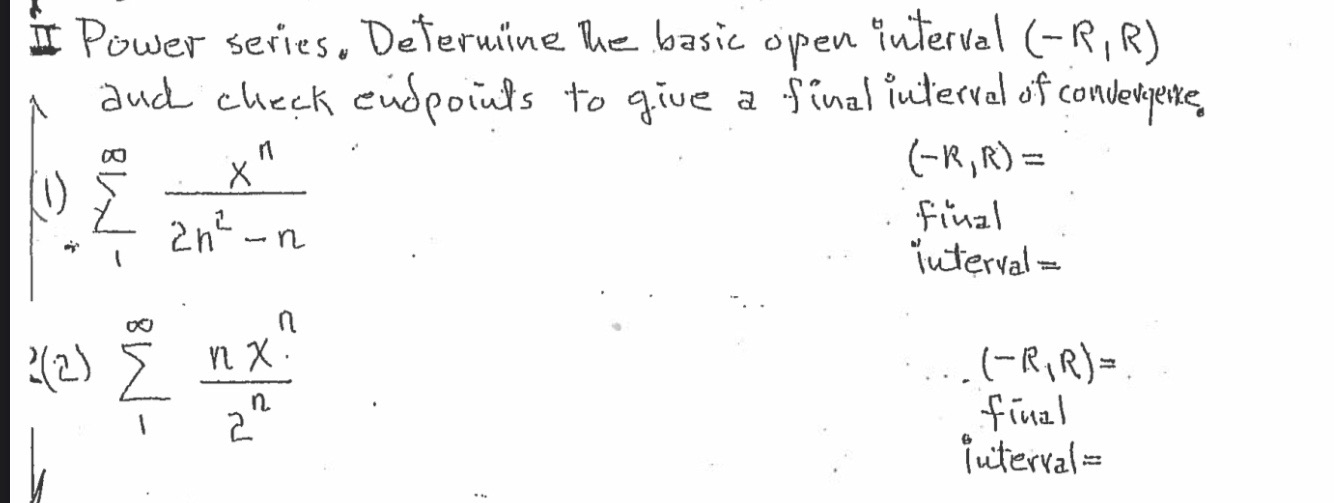 II Power series. Determine the basic open interval (-R, R)
and check endpoints to give a final interval of convergence.
(1) ∑_1^∞ x^n / (2n^2 - n)
(-R, R) =
final
interval =
(2) ∑_1^∞ n x^n / 2^n
(-R, R) =
final
interval =